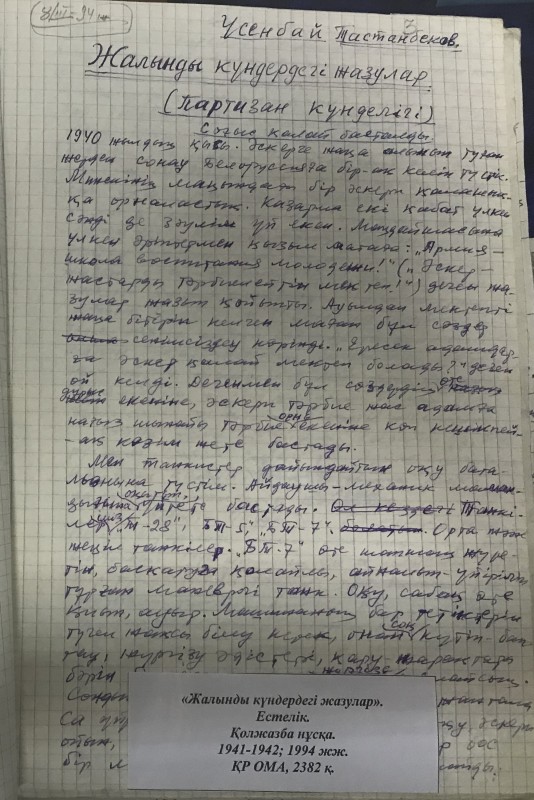 Үсенбай Тастанбеков.
Жалынды күндердегі жазулар
(Партизан күнделігі)
Соғыс қалай басталды.
1940 жылдың қысы. Әскерге жаңа алынып туған
жерден сонау Белоруссияға бір-ақ келіп түстік.
Минскінің маңындағы бір әскери қалашық-
қа орналастық. Казарма екі қабат үлкен
сәнді де зәулім үй екен. Маңдайшасына
үлкен әріптермен қызыл матаға: „Армия –
школа воспитания молодежи!" („Әскер –
жастарды тәрбиелейтін мектеп!") деген жа-
зулар жазып қойыпты. Ауылдан мектепті
жаңа бітіріп келген маған бұл сөздер
сенімсіздеу көрінді. „Ересек адамдар-
ға әскер қалай мектеп болады?" деген
ой келді. Дегенмен бұл сөздердің өте
дұрыс екеніне, әскери тәрбие жас адамға
нағыз шынайы тәрбие екеніне көп кешікпей-
ақ көзім жете бастады.
Мен танкистер дайындайтын оқу бата-
льонына түстім. Айдаушы-механик маман-
дығына үйрете бастады. Танкі-
лер „Т-28", „БТ-5", „БТ-7". Орта және
жеңіл танкілер. „БТ-7" өте шапшаң жүре-
тін, басқаруға қолайлы, айналып-үйірілі
тұрған маневрлі танк. Оқу, сабақ өте
қиын, ауыр. Машинаның бар тетіктерін
түгел жақсы білу керек, оның күтіп-бап-
тау, жүргізу әдістері, қару-жарақтары
бәрін
«Жалынды күндердегі жазулар».
Естелік.
Қолжазба нұсқа.
1941-1942; 1994 жж.
ҚР ОМА, 2382 қ.